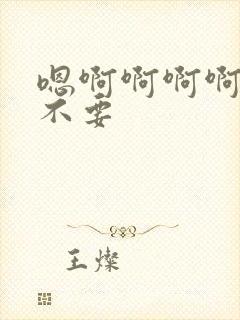 嗯啊啊啊啊
不要
王燦